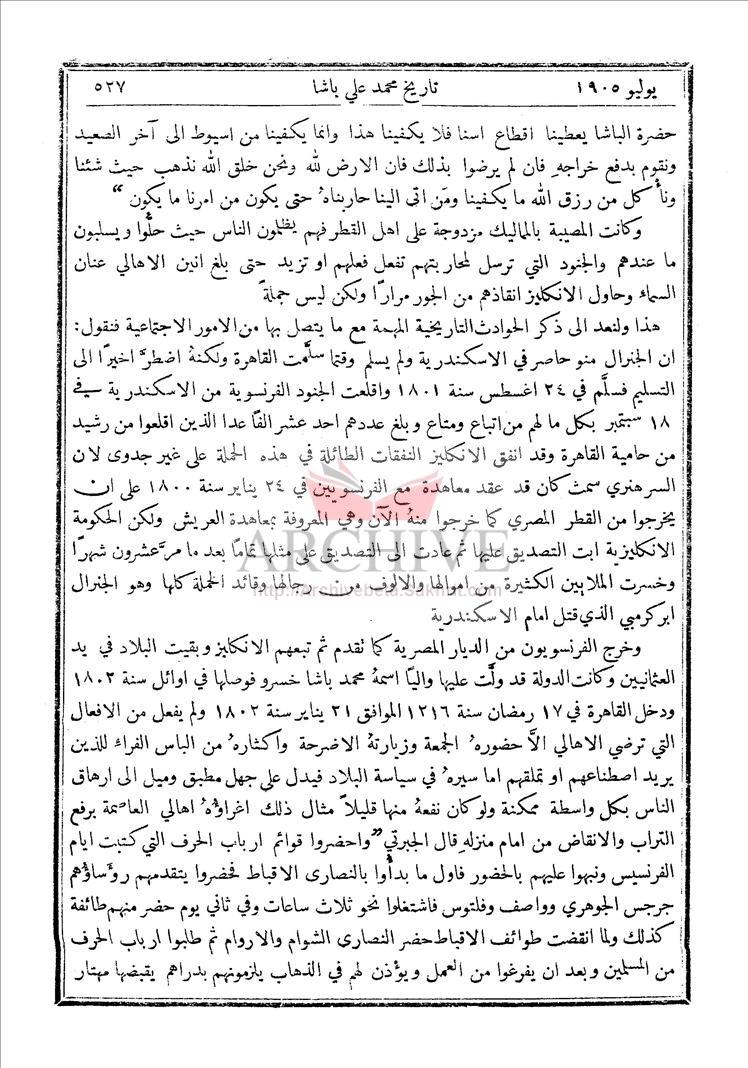 يوليو ١٩٠٥ تاريخ محمد علي باشا ٥٢٧
حضرة الباشا يعطينا اقطاع اسنا فلا يكفينا هذا وانما يكفينا من اسيوط الى آخر الصعيد
ونقوم بدفع خراجهِ فان لم يرضوا بذلك فان الارض لله ونحن خلق الله نذهب حيث شئنا
ونأكل من رزق الله ما يكفينا ومَن اتى الينا حاربناهُ حتى يكون من امرنا ما يكون “
وكانت المصيبة بالماليك مزدوجة على اهل القطر فهم يظلمون الناس حيث حلُّوا ويسلبون
ما عندهم والجنود التي ترسل لمحاربتهم تفعل فعلهم او تزيد حتى بلغ انين الاهالي عنان
السماء وحاول الانكليز انقاذهم من الجور مرارًا ولكن ليس حملةً
هذا ولنعد الى ذكر الحوادث التاريخية المهمة مع ما يتصل بها من الامور الاجتماعية فنقول:
ان الجنرال منو حاصر في الاسكندرية ولم يسلم وقتما سلَّمت القاهرة ولكنهُ اضطرَّ اخيرًا الى
التسليم فسلَّم في ٢٤ اغسطس سنة ١٨٠١ واقلعت الجنود الفرنسوية من الاسكندرية في
١٨ سبتمبر بكل ما لهم من اتباع ومتاع وبلغ عددهم احد عشر الفًا عدا الذين اقلعوا من رشيد
من حامية القاهرة وقد انفق الانكليز النفقات الطائلة في هذه الحملة على غير جدوى لان
السر هنري سمث كان قد عقد معاهدة مع الفرنسويين في ٢٤ يناير سنة ١٨٠٠ على ان
يخرجوا من القطر المصري كما خرجوا منهُ الآن وهي المعروفة بمعاهدة العريش ولكن الحكومة
الانكليزية ابت التصديق عليها ثم عادت الى التصديق على مثلها تمامًا بعد ما مرَّ عشرون شهرًا
وخسرت الملايين الكثيرة من اموالها والالوف من رجالها وقائد الحملة كلها وهو الجنرال
ابركرمبي الذي قتل امام الاسكندرية
وخرج الفرنسويون من الديار المصرية كما تقدم ثم تبعهم الانكليز وبقيت البلاد في يد
العثمانيين وكانت الدولة قد ولَّت عليها واليًا اسمهُ محمد باشا خسرو فوصلها في اوائل سنة ١٨٠٢
ودخل القاهرة في ١٧ رمضان سنة ١٢١٦ الموافق ٢١ يناير سنة ١٨٠٢ ولم يفعل من الافعال
التي ترضي الاهالي الاَّ حضورهُ الجمعة وزيارتهُ الاضرحة واكثارهُ من الباس الفراء للذين
يريد اصطناعهم او تملقهم اما سيرهُ في سياسة البلاد فيدل على جهل مطبق وميل الى ارهاق
الناس بكل واسطة ممكنة ولو كان نفعهُ منها قليلاً مثال ذلك اغراؤهُ اهالي العاصمة برفع
التراب والانقاض من امام منزلهِ قال الجبرتي ”واحضروا قوائم ارباب الحرف التي كتبت ايام
الفرنسيس ونبهوا عليهم بالحضور فاول ما بدأوا بالنصارى الاقباط فحضروا يتقدمهم رؤساؤهم
جرجس الجوهري وواصف وفلتوس فاشتغلوا نحو ثلاث ساعات وفي ثاني يوم حضر منهم طائفة
كذلك ولما انقضت طوائف الاقباط حضر النصارى الشوام والاروام ثم طلبوا ارباب الحرف
من المسلمين وبعد ان يفرغوا من العمل ويؤذن لهم في الذهاب يلزمونهم بدراهم يقبضها مهتار
ARCHIVE
http://Archivebeta.Sakhrit.com